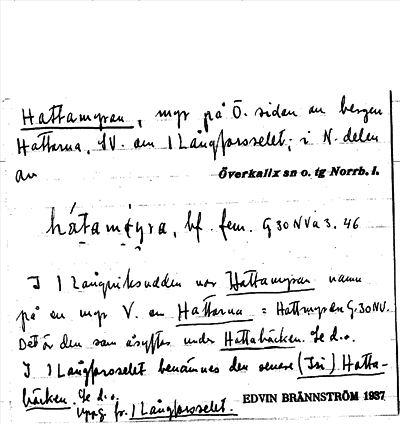 Hattamyran, myr på Ö. sidan av bergen
Hattarna, SV. om 1 Långforsselet; i N. delen
av Överkalix sn o. tg Norrb. l.
bf. fem. G 30 NV a 3. 46
I 1 Långviksudden var Hattamyran namn
på en myr V. om Hattarna = Hattmyran G. 30 NV.
Det är den som åsyftas under Hattabäcken. Se d.o.
I 1 Långforsselet benämnes den senare (Tri) Hatta-
bäcken. Se d.o.
Uppg. fr. 1 Långforsselet. EDVIN BRÄNNSTRÖM 1937